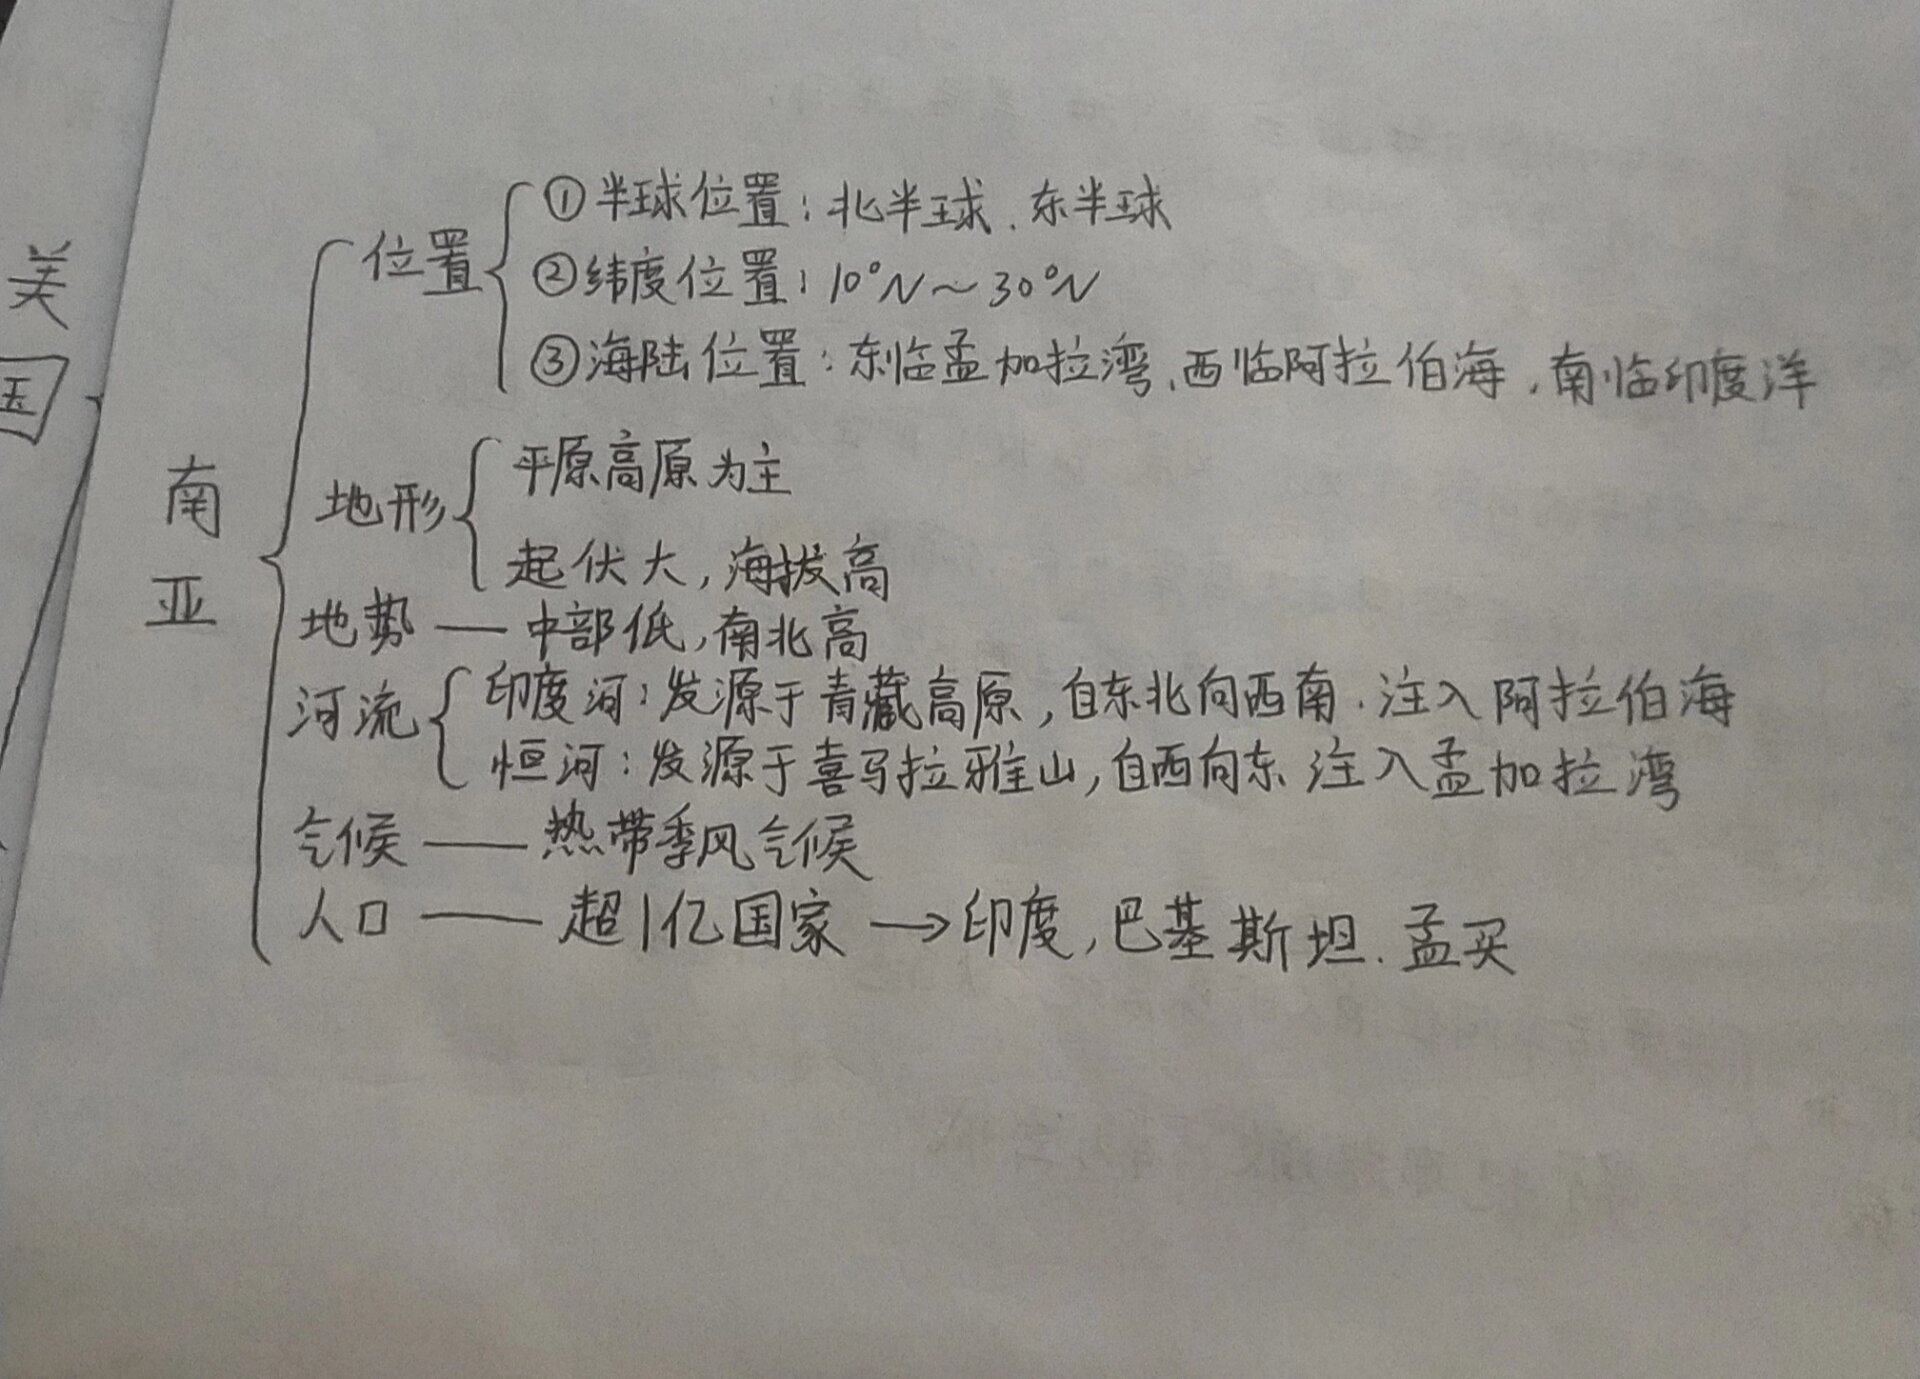 美
国
南
亚
位置
①半球位置：北半球、东半球
②纬度位置：10°N～30°N
③海陆位置：东临孟加拉湾、西临阿拉伯海，南临印度洋
地形
平原高原为主
起伏大，海拔高
地势——中部低，南北高
河流
印度河：发源于青藏高原，自东北向西南．注入阿拉伯海
恒河：发源于喜马拉雅山，自西向东 注入孟加拉湾
气候——热带季风气候
人口——超1亿国家→印度，巴基斯坦．孟买